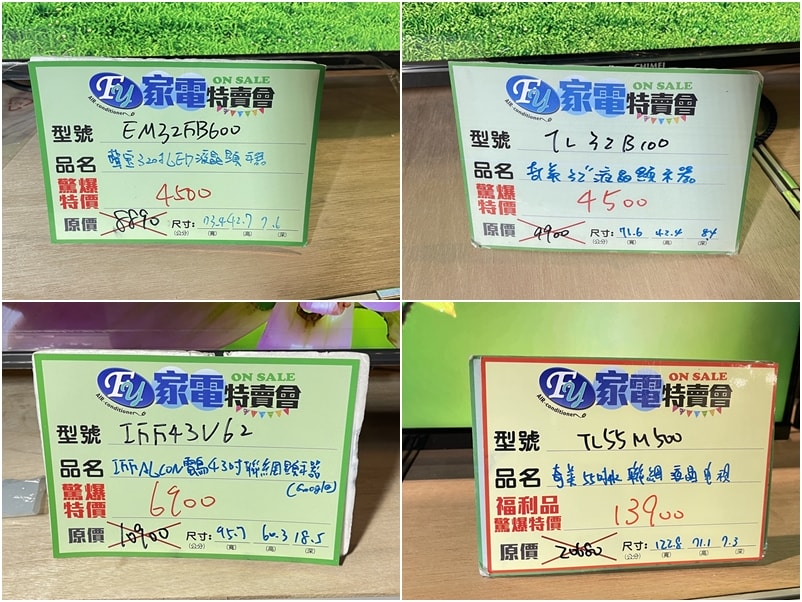 FU 家電特賣會 ON SALE
AIR-conditioner
型號 EM32FB600
品名 聲寶32吋LED液晶顯示器
驚爆特價 4500
原價 8890 尺寸: 73.4 42.7 7.6
(公分) (寬) (高) (深)
CHIMEI
FU 家電特賣會 ON SALE
AIR-conditioner
型號 TL32B100
品名 奇美32"液晶顯示器
驚爆特價 4500
原價 9900 尺寸: 71.6 42.4 8.4
(公分) (寬) (高) (深)
FU 家電特賣會 ON SALE
AIR-conditioner
型號 IFF43V62
品名 IFFALCON電鳥43吋聯網顯示器
(Google)
驚爆特價 6900
原價 10900 尺寸: 95.7 60.3 18.5
(公分) (寬) (高) (深)
FU 家電特賣會 ON SALE
AIR-conditioner
型號 TL55M500
品名 奇美55吋4K聯網液晶電視
福利品
驚爆特價 13900
原價 20680 尺寸: 122.8 71.1 7.3
(公分) (寬) (高) (深)